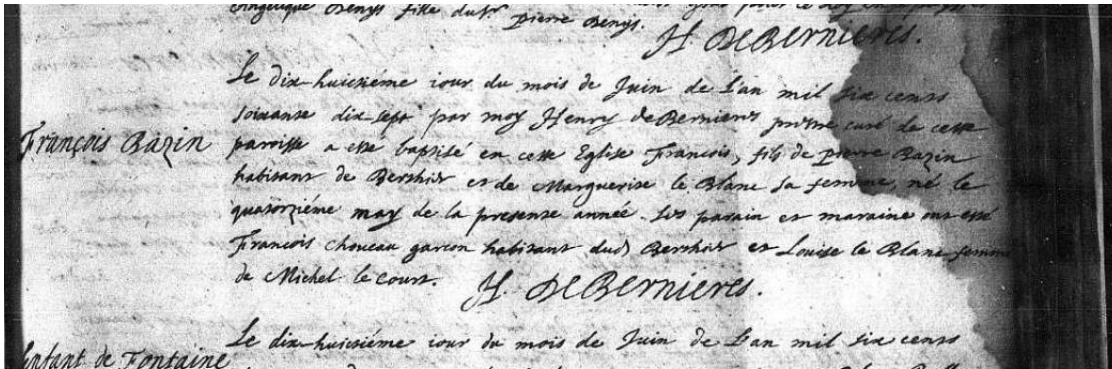 Angelique Denys fille du Sr. pierre Denys.
H. DeBernieres.
François Bazin
Le dix-huictiéme iour du mois de Juin de L'an mil six cents
soixante dix-sept par moy Henry deBernieres prestre curé de cette
paroisse a esté baptisé en cette Eglise François, fils de pierre Bazin
habitant de Berthier et de Marguerite le Blanc sa femme, né le
quatorziéme may de la presente année. Les parain et maraine ont esté
François choueau garcon habitant dud. Berthier et Louise le Blanc femme
de Michel le court.
H. DeBernieres.
Enfant de Fontaine
Le dix-huictiéme iour du mois de Juin de L'an mil six cents